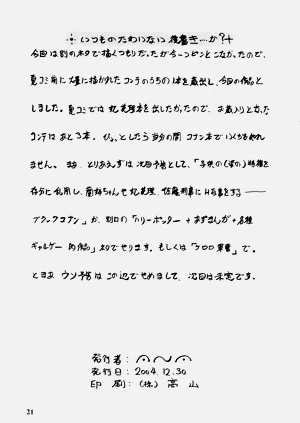 いつものたわいない後書き…か?
今回は別のネタで描くつもりだったが今一つピンとこなかったので、
夏コミ用に大量に描かれたコンテのうちの1本を蔵出し、今回の作品と
しました。夏コミでは 本を出したかったので、お蔵入りとなった
コンテはあと3本。ひょっとしたら当分の間 コナン本でいくかもしれ
ません。まぁ、とりあえずは次回予告として、「子供の(姿の)特権を
存分に利用し、蘭姉ちゃんや 佐藤刑事にH な事をする――
ブラックコナン」か、別口の「ハリーポッター+あずまんが+各種
ギャルゲー 的作品」ネタでやります。もしくは「ケロロ軍曹」で。
とまぁ ウソ予告は この辺でやめまして、次回は未定です。
発行者:
発行日:2004.12.30
印 刷:(株) 高山
21